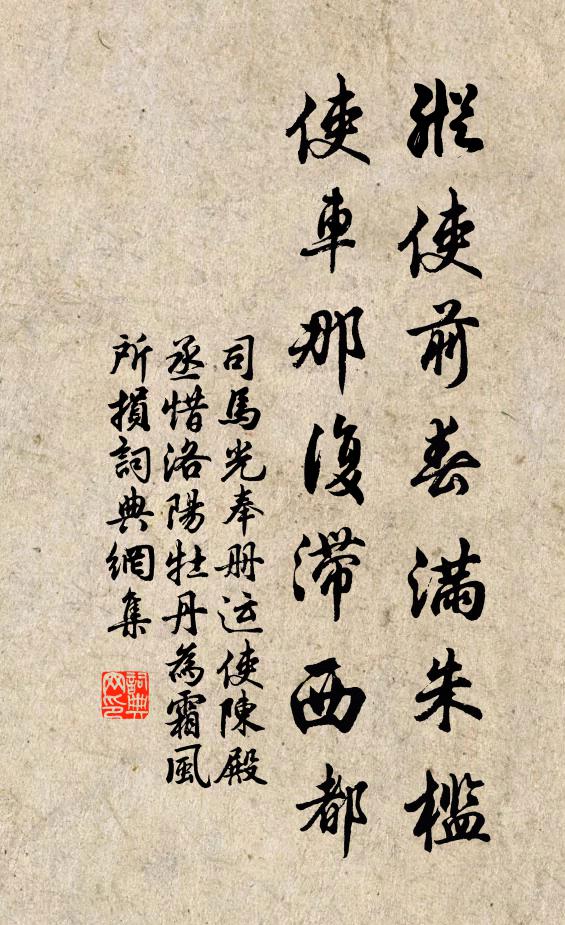 縱使前春滿朱檻
使車那復滯西都
司馬光奉册运使陳殿
丞惜洛陽牡丹為霜風
所損詞典網集
詞典
网印